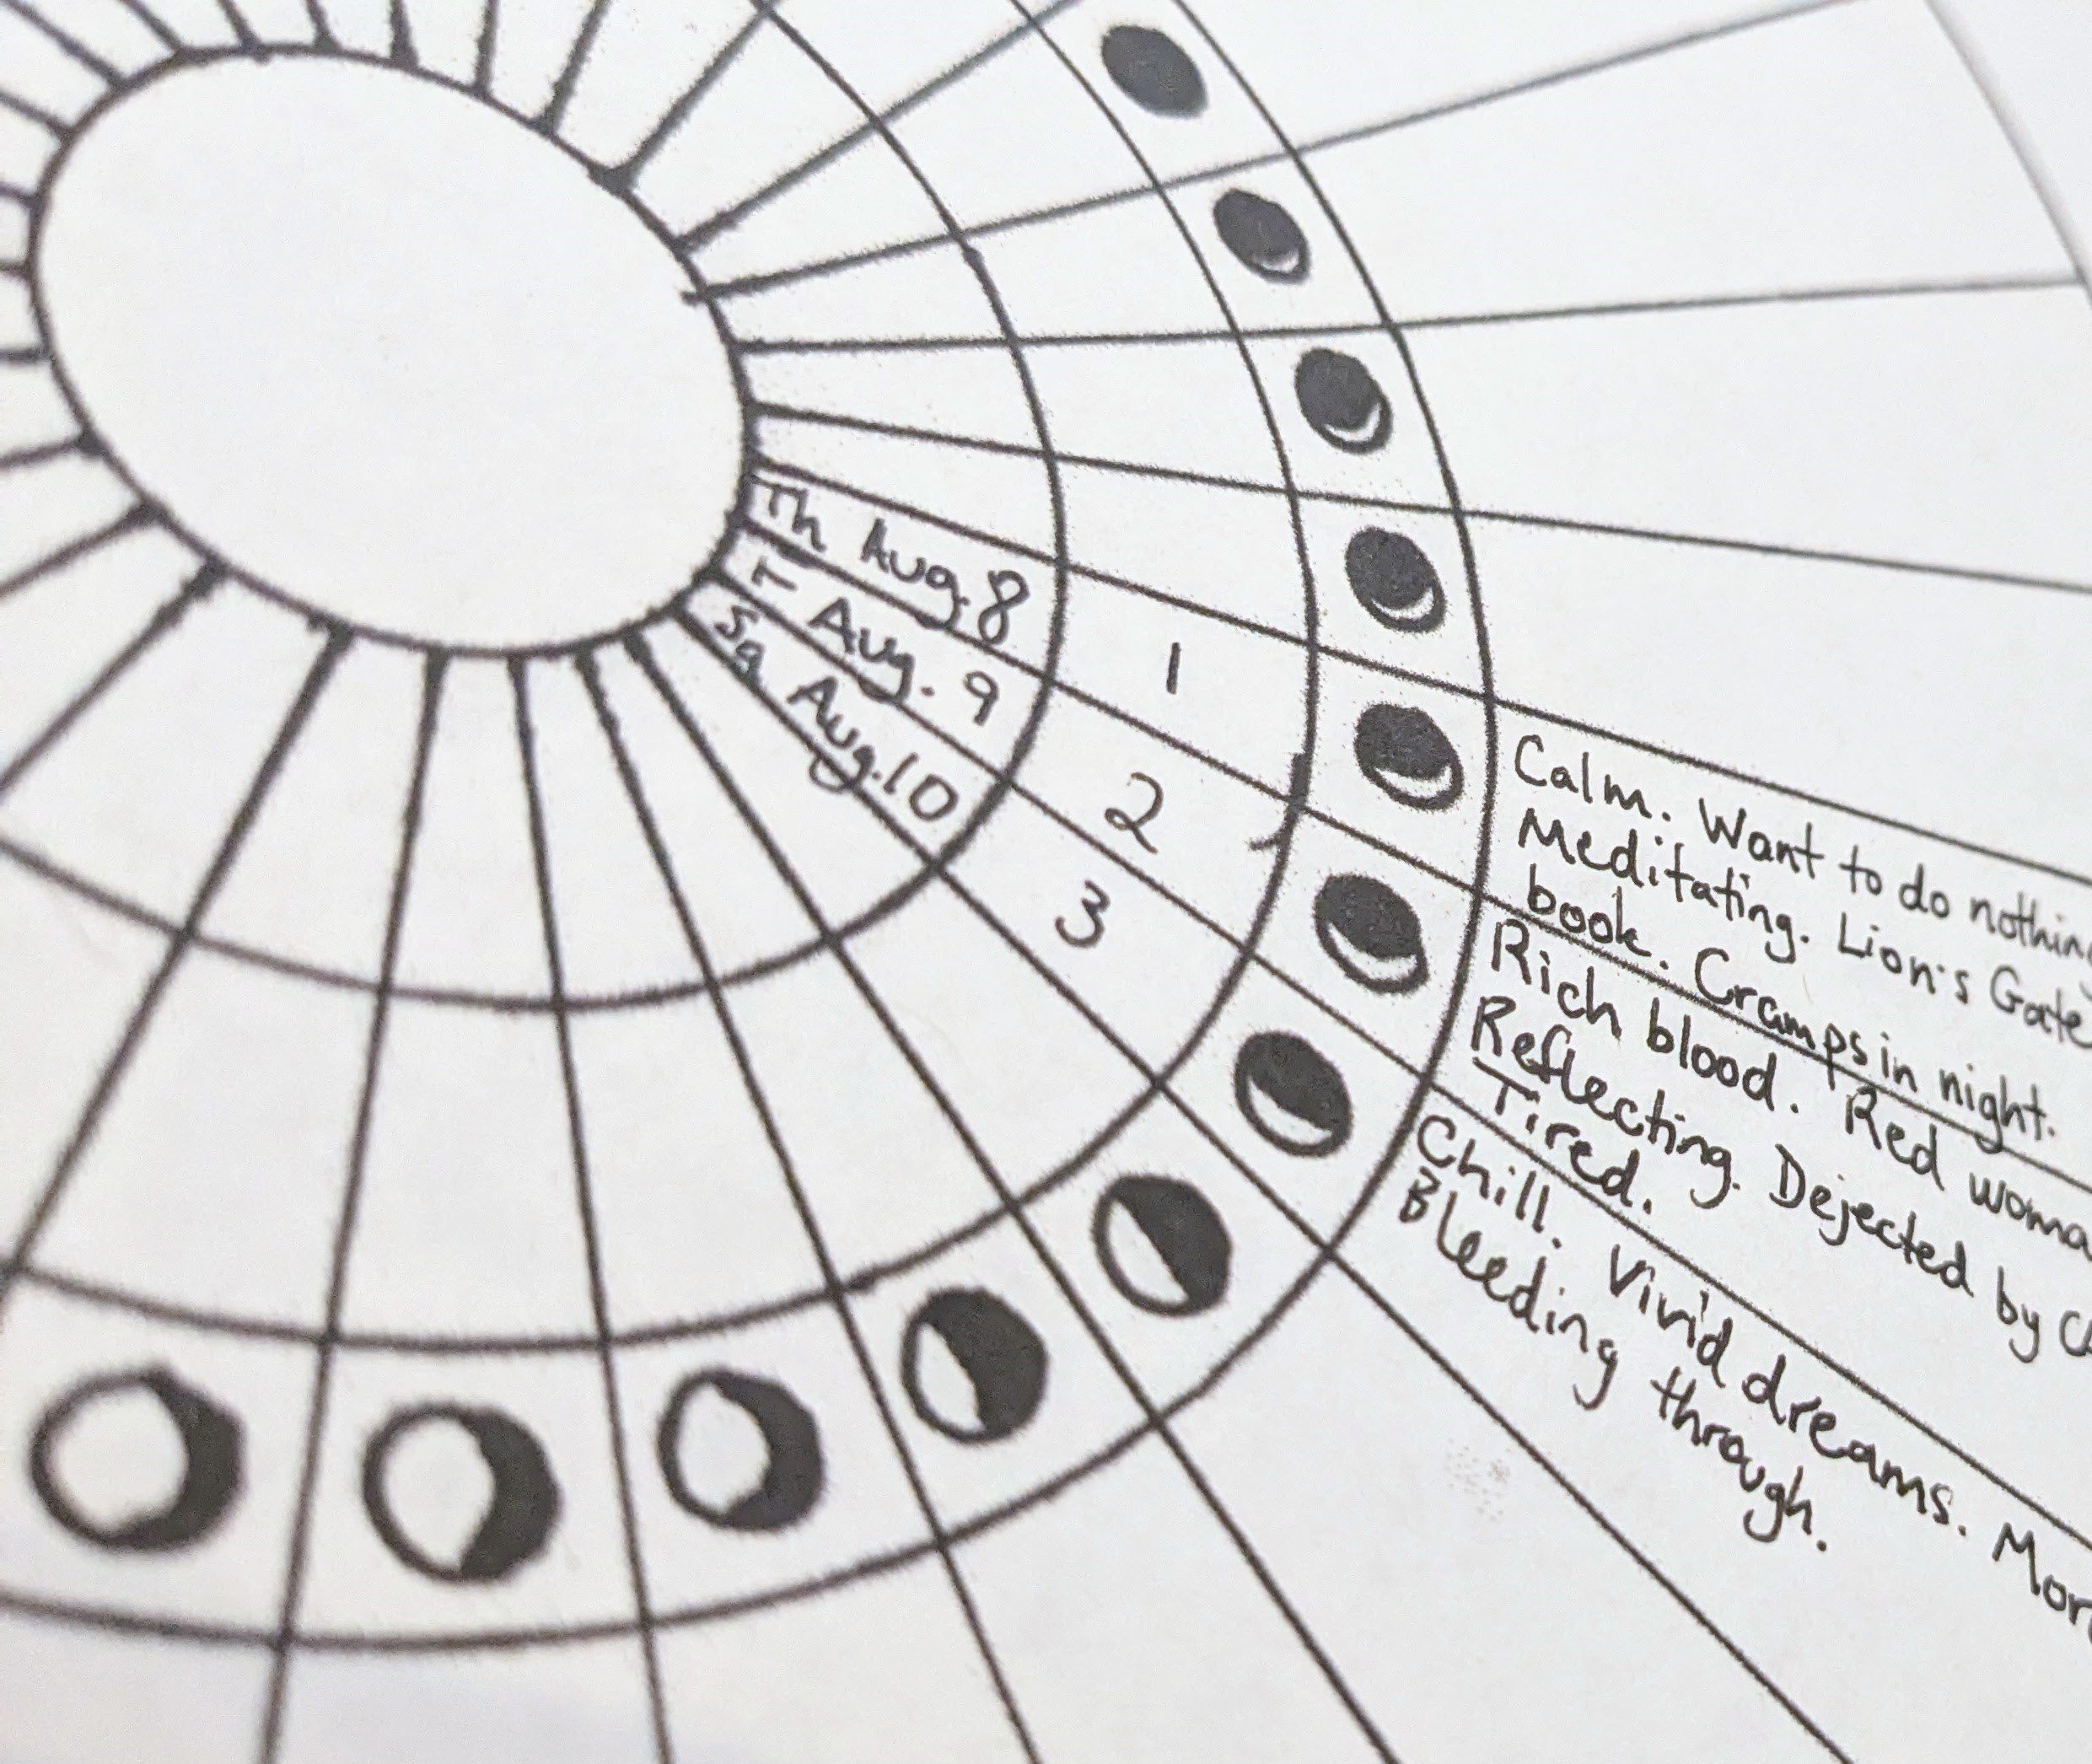 Th Aug. 8
F Aug. 9
Sa Aug. 10
1
2
3
Calm. Want to do nothing
Meditating. Lion's Gate
book. Cramps in night.
Rich blood. Red
Reflecting. Dejected by
Tired.
Chill. Vivid dreams.
Bleeding through.